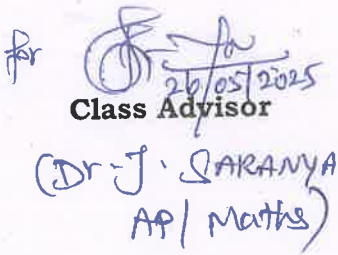 for
26/05/2025
Class Advisor
(Dr-J. SARANYA
AP/ Maths)